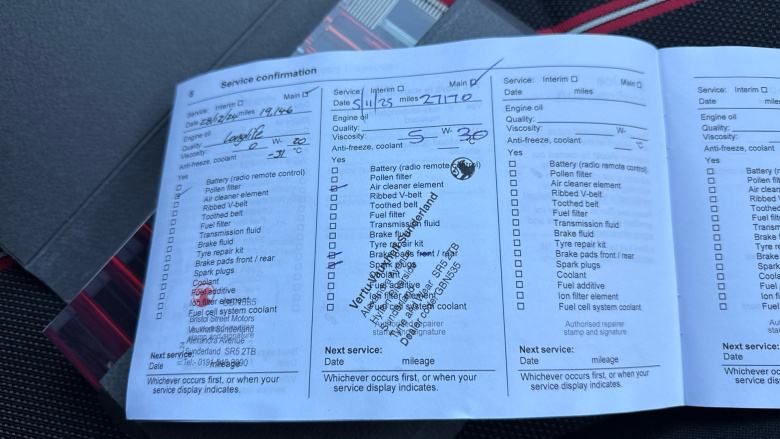 8 Service confirmation
Service: Interim Main
Date 28/2/24 miles 19,146
Engine oil
Quality: Longlife
Viscosity: 0 W- 20
Anti-freeze, coolant -31 °C
Yes
Battery (radio remote control)
Pollen filter
Air cleaner element
Ribbed V-belt
Toothed belt
Fuel filter
Transmission fluid
Brake fluid
Tyre repair kit
Brake pads front / rear
Spark plugs
Coolant
Fuel additive
Ion filter element
Fuel cell system coolant
Bristol Street Motors
Vauxhall Sunderland
Alexandra Avenue
Sunderland SR5 2TB
Next service:
Date mileage
Whichever occurs first, or when your
service display indicates.
Service: Interim Main
Date 5/11/25 miles 27170
Engine oil
Quality:
Viscosity: 5 W- 30
Anti-freeze, coolant
Yes
Battery (radio remote control)
Pollen filter
Air cleaner element
Ribbed V-belt
Toothed belt
Fuel filter
Transmission fluid
Brake fluid
Tyre repair kit
Brake pads front / rear
Spark plugs
Coolant
Fuel additive
Ion filter element
Fuel cell system coolant
Sunderland
SR5 2TB
Dealer code: GBN535
Authorised repairer
stamp and signature
Next service:
Date mileage
Whichever occurs first, or when your
service display indicates.
Service: Interim Main
Date miles
Engine oil
Quality:
Viscosity: W-
Anti-freeze, coolant °C
Yes
Battery (radio remote control)
Pollen filter
Air cleaner element
Ribbed V-belt
Toothed belt
Fuel filter
Transmission fluid
Brake fluid
Tyre repair kit
Brake pads front / rear
Spark plugs
Coolant
Fuel additive
Ion filter element
Fuel cell system coolant
Authorised repairer
stamp and signature
Next service:
Date mileage
Whichever occurs first, or when your
service display indicates.
Service: Interim
Date
Engine oil
Quality:
Viscosity:
Anti-freeze, coolant
Yes
Battery
Pollen
Air clean
Ribbed
Toothed
Fuel filt
Transm
Brake f
Tyre re
Brake
Spark
Coola
Fuel a
Ion fil
Fuel
Next service:
Date
Whichever occurs
service display